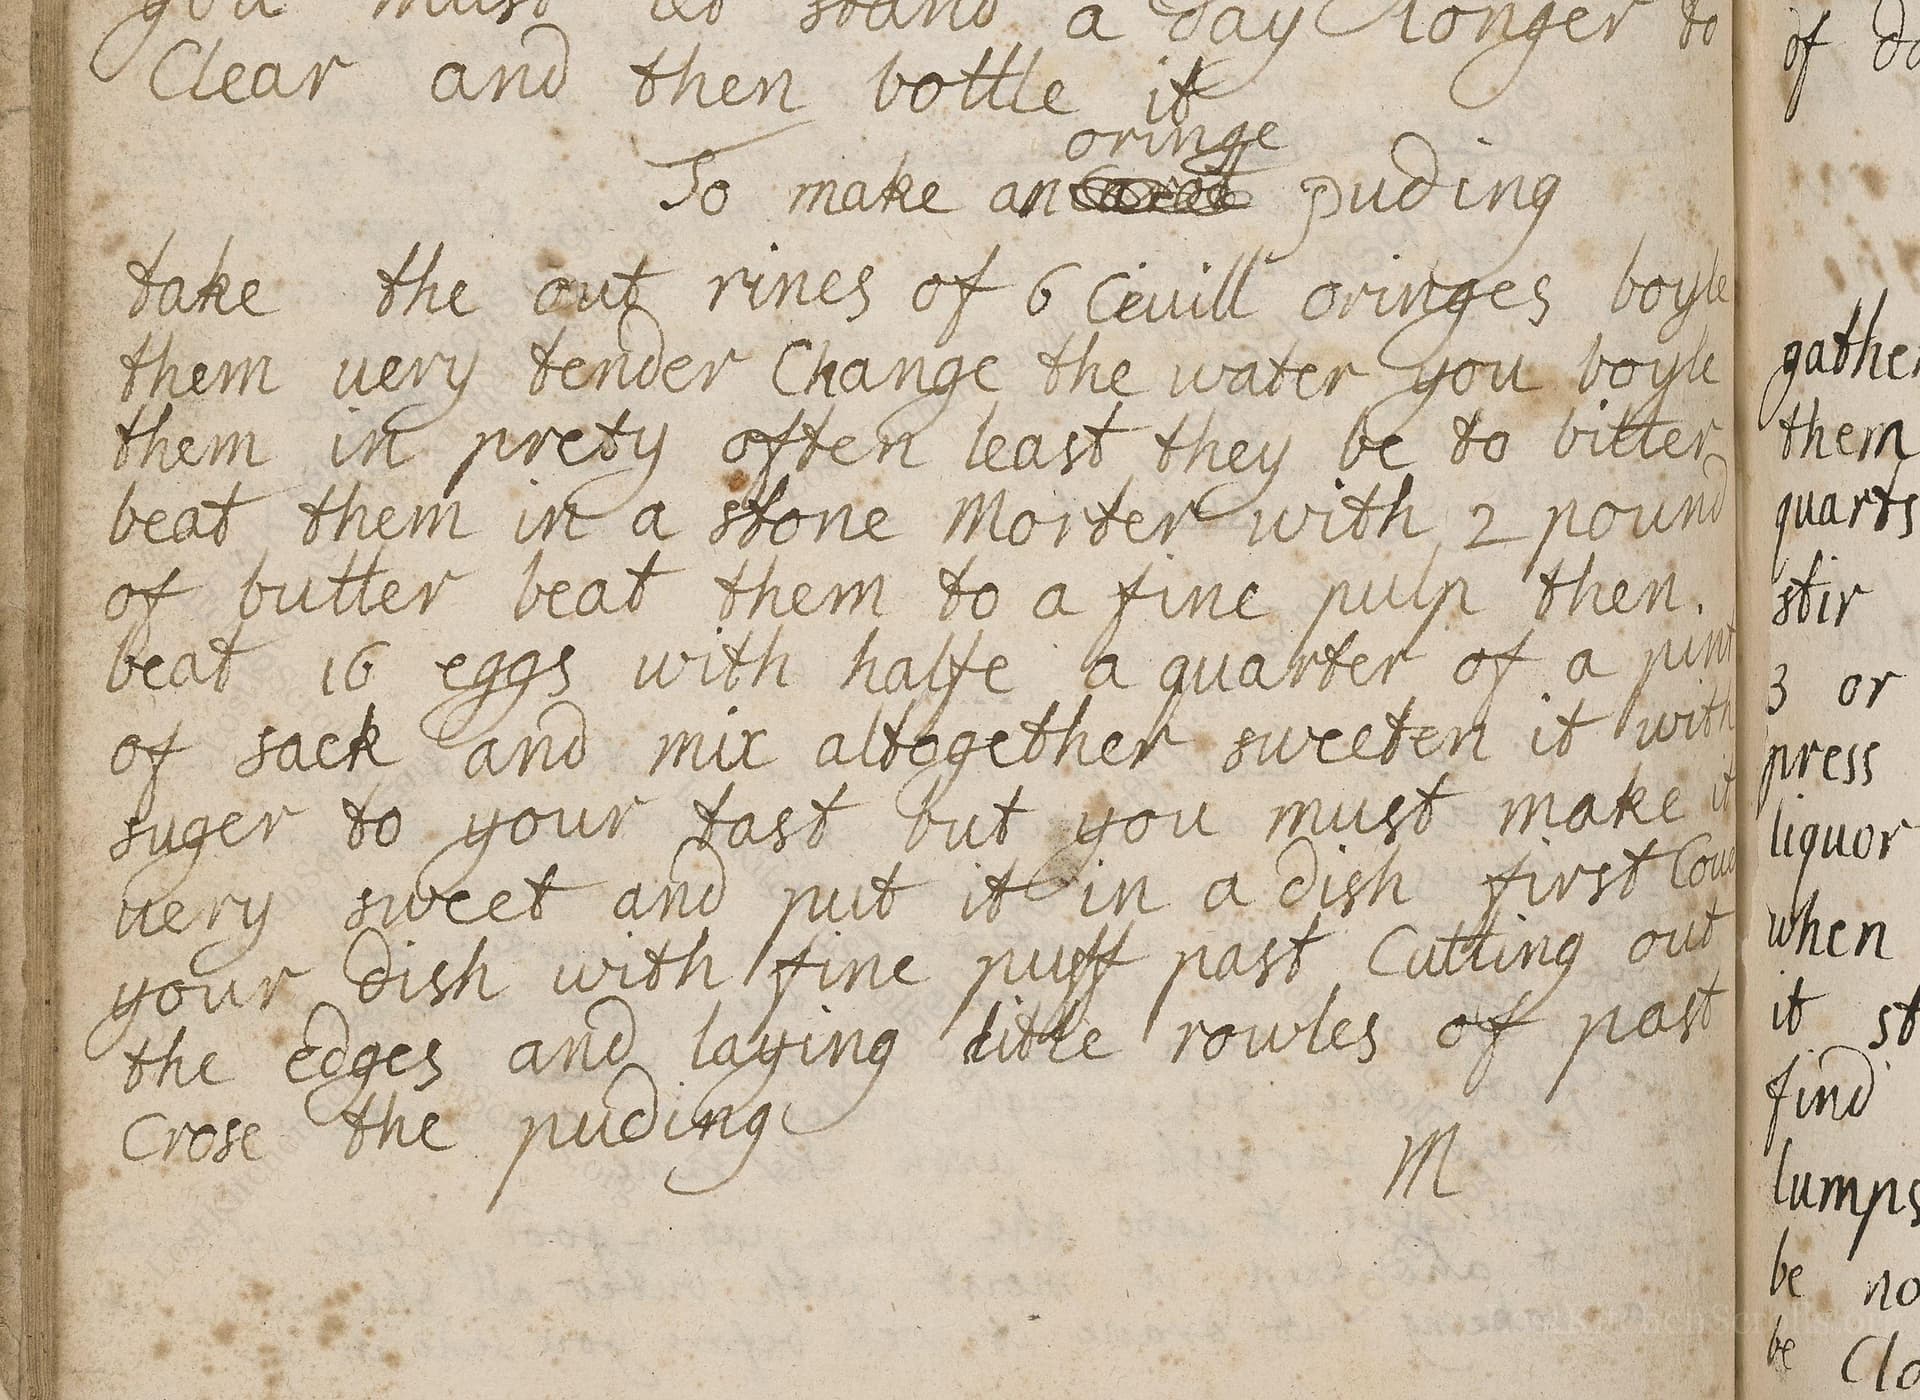 you must let stand a day longer to
Clear and then bottle it
oringe
To make an puding
take the out rines of 6 Ciuill oringes boyle
them uery tender Change the water you boyle
them in prety often least they be to bitter
beat them in a stone Morter with 2 pound
of butter beat them to a fine pulp then.
beat 16 eggs with halfe a quarter of a pint
of sack and mix altogether sweeten it with
suger to your tast but you must make it
uery sweet and put it in a dish first Couer
your dish with fine puff past Cutting out
the edges and laying little rowles of past
Crose the puding
M
of
gather
them
quarts
stir
3 or
press
liquor
when
it st
find
lumps
be no
be Cla